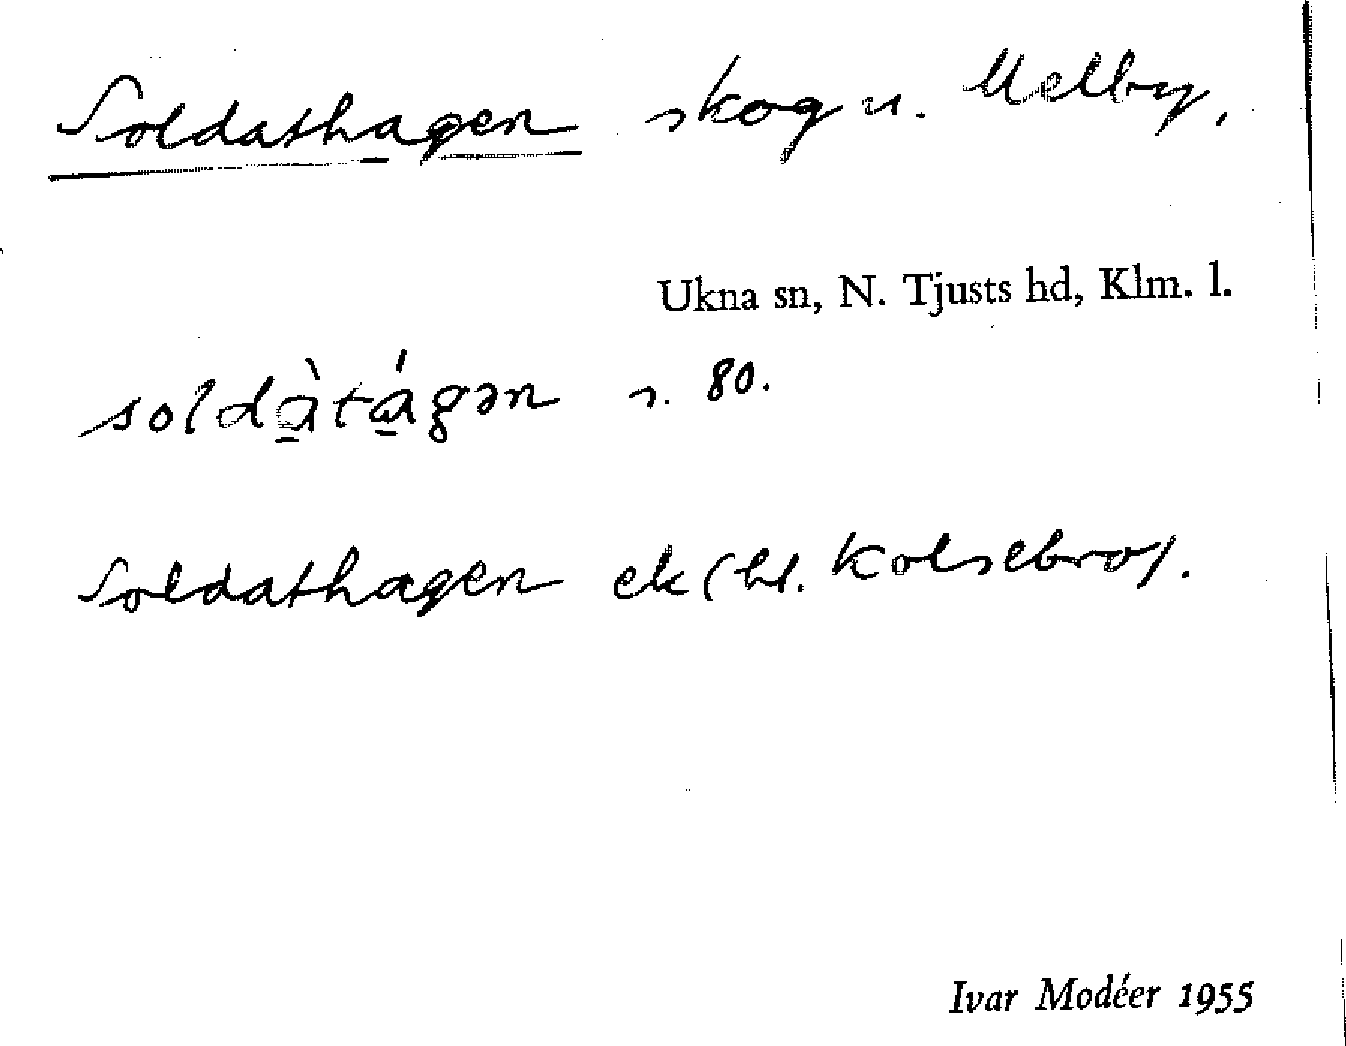 Soldathagen skog u. Melby,
Ukna sn, N. Tjusts hd, Klm. l.
soldà̱tá̱gən s. 80.
Soldathagen ek (bl. Kolsebro).
Ivar Modéer 1955